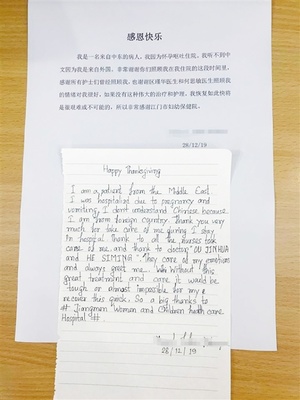 感恩快乐
我是一名来自中东的病人，我因为怀孕呕吐住院，我听不到中
文因为我是来自外国，非常谢谢你们照顾我在我住院的这段时间里，
感谢所有护士们曾经照顾我，也谢谢区瑾华医生和何思敏医生照顾我
的情绪对我很好，如果没有这种伟大的治疗和护理，我恢复如此快将
是很艰难或不可能的，所以非常感谢江门市妇幼保健院。
28/12/19
Happy Thanksgiving
I am a patient from the Middle East.
I was hospitalized due to pregnancy and
vomiting, I don't understand Chinese because
I am from foreign country. Thank you very
much for take care of me during I stay
in hospital thank to all the nurses took
care of me and thank to doctor "OU JINHUA
and HE SIMING". They care of my emotions
and always greet me. Without this
great treatment and care it would be
tough or almost impossible for my
recover this quick. So a big thanks to
## Jiangmen Woman and Children health care
Hospital ##.
28/12/19